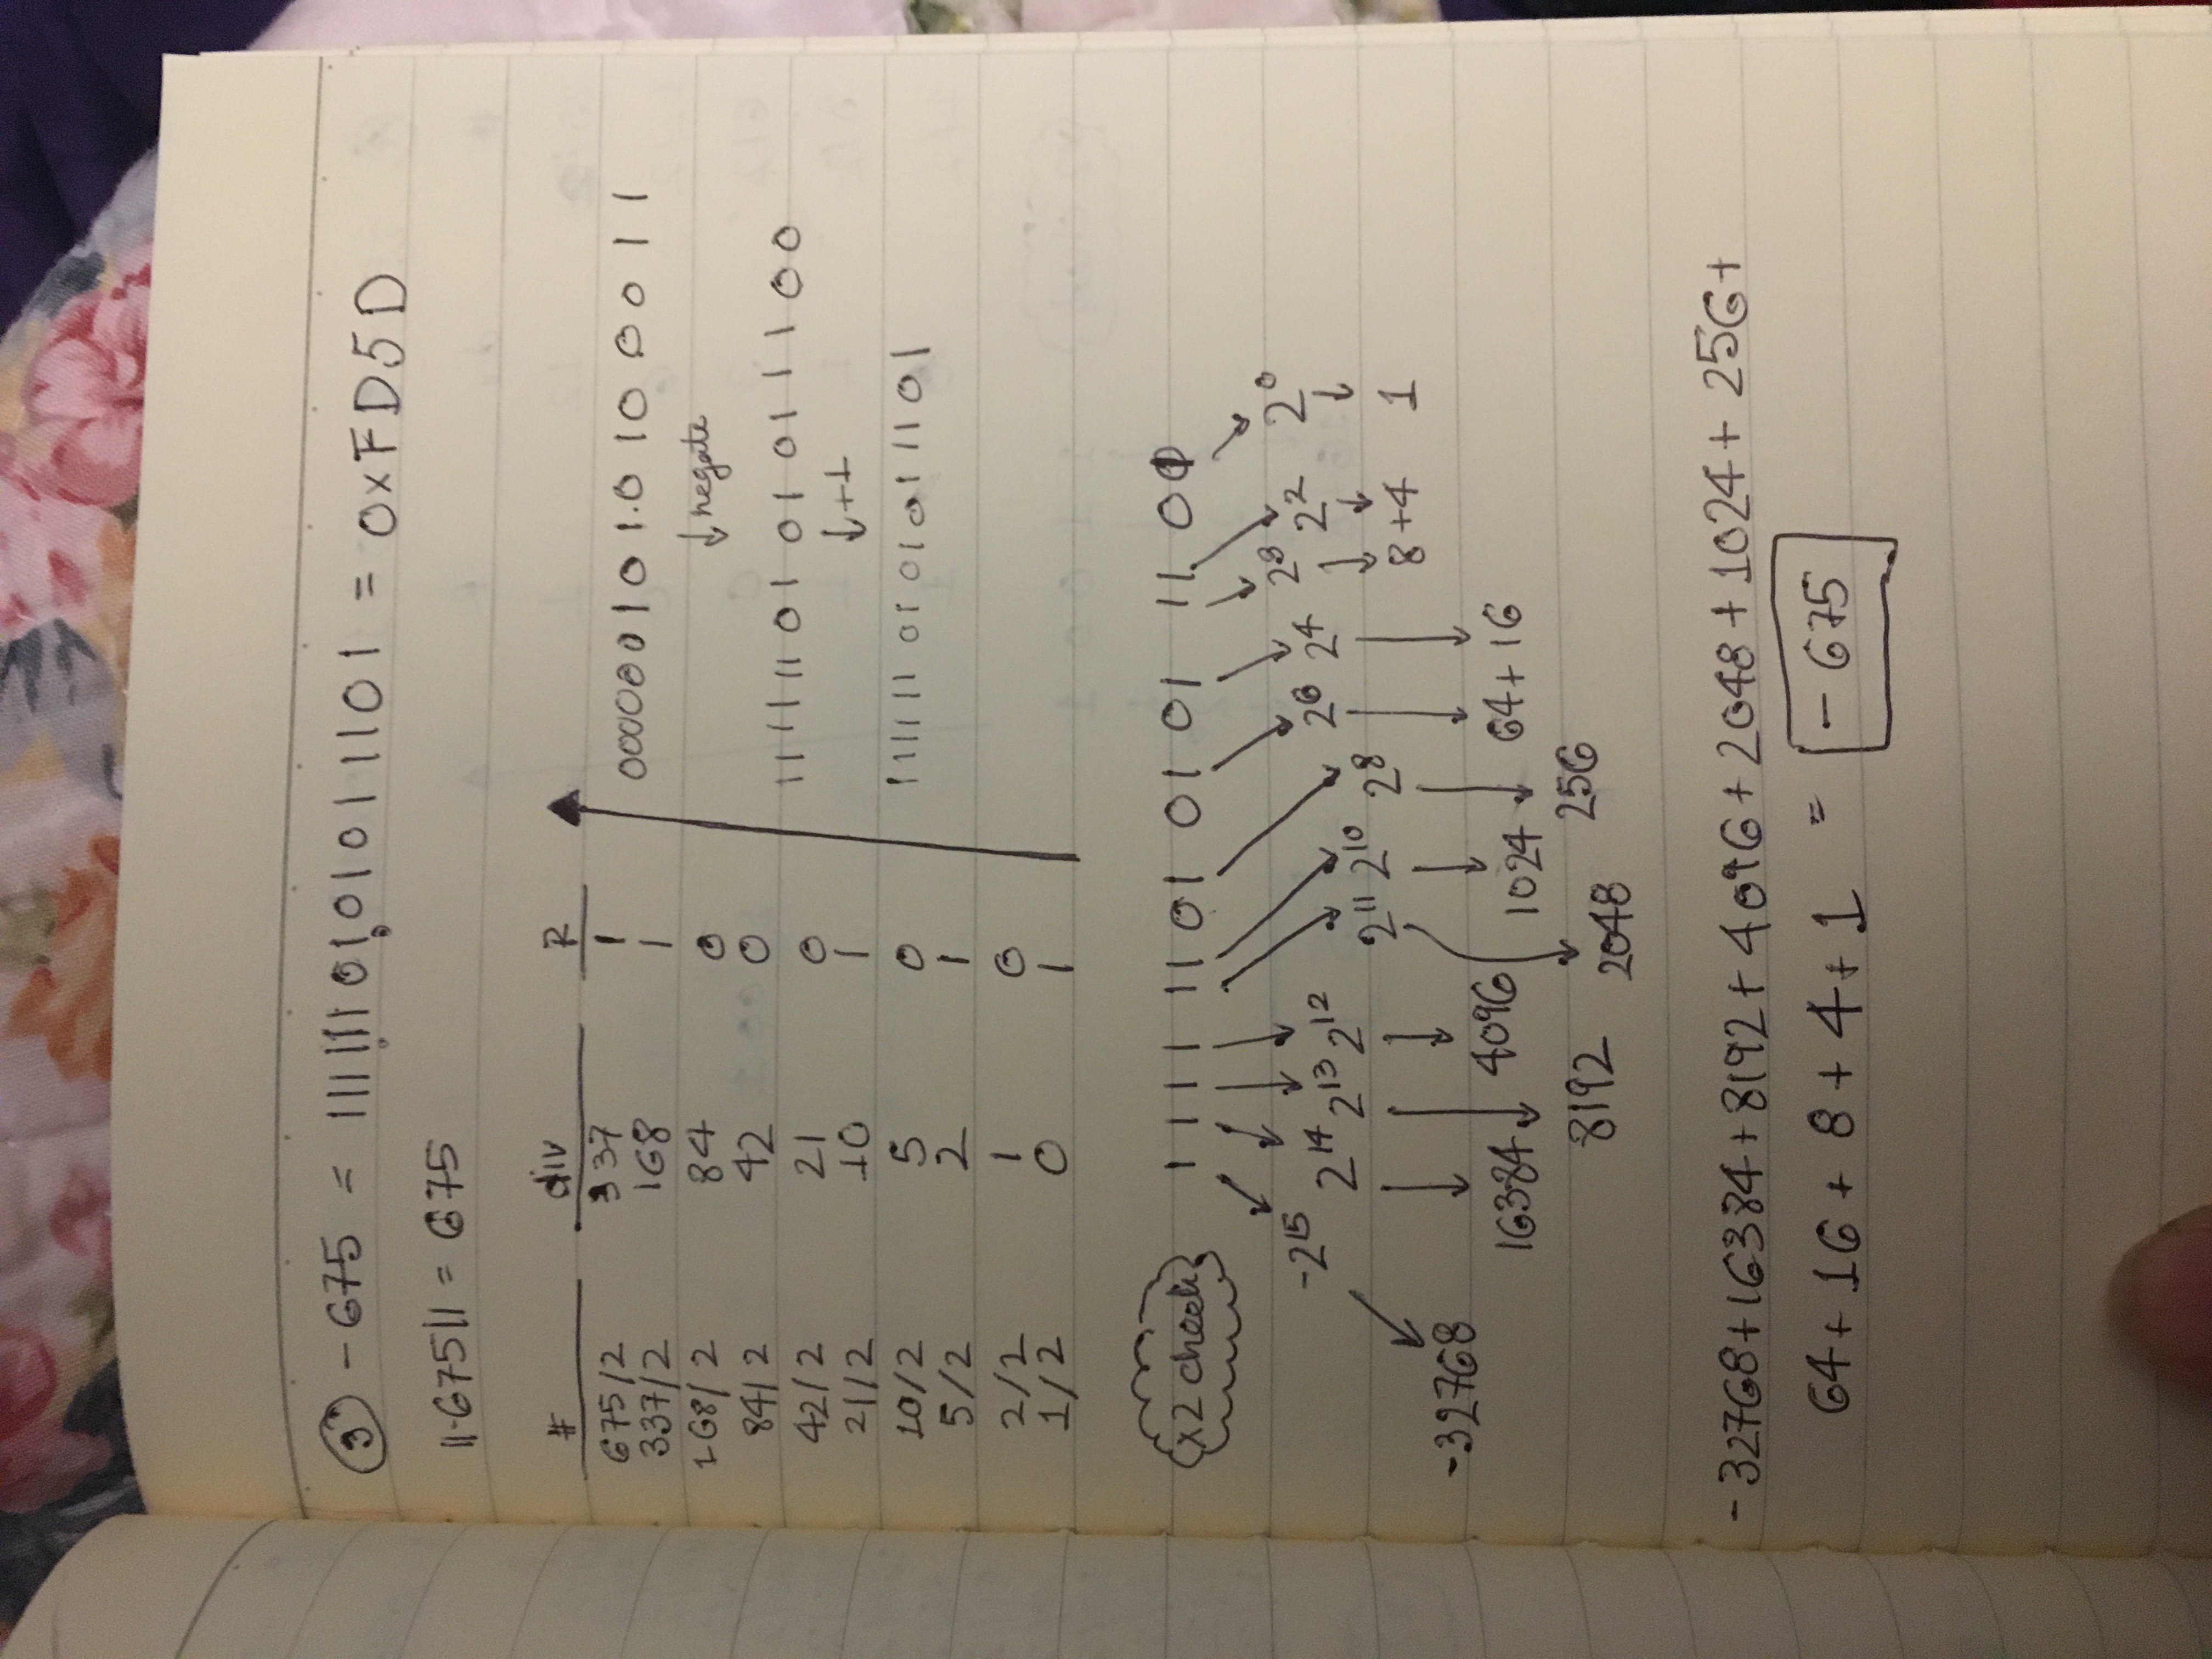 3 -675 = 1111110101011101 = 0xFD5D
||-675|| = 675
# div R
675/2 337 1
337/2 168 1
168/2 84 0
84/2 42 0
42/2 21 0
21/2 10 1
10/2 5 0
5/2 2 1
2/2 1 0
1/2 0 1
000000101.0100011
↓ negate
1111110101011100
↓ +1
1111110101011101
x2 check 1111 1101 0101 1101
-2^15 2^14 2^13 2^12 2^11 2^10 2^8 2^6 2^4 2^3 2^2 2^0
-32768 16384 8192 4096 2048 1024 256 64+16 8+4 1
-32768+16384+8192+4096+2048+1024+256+
64+16+8+4+1 = -675